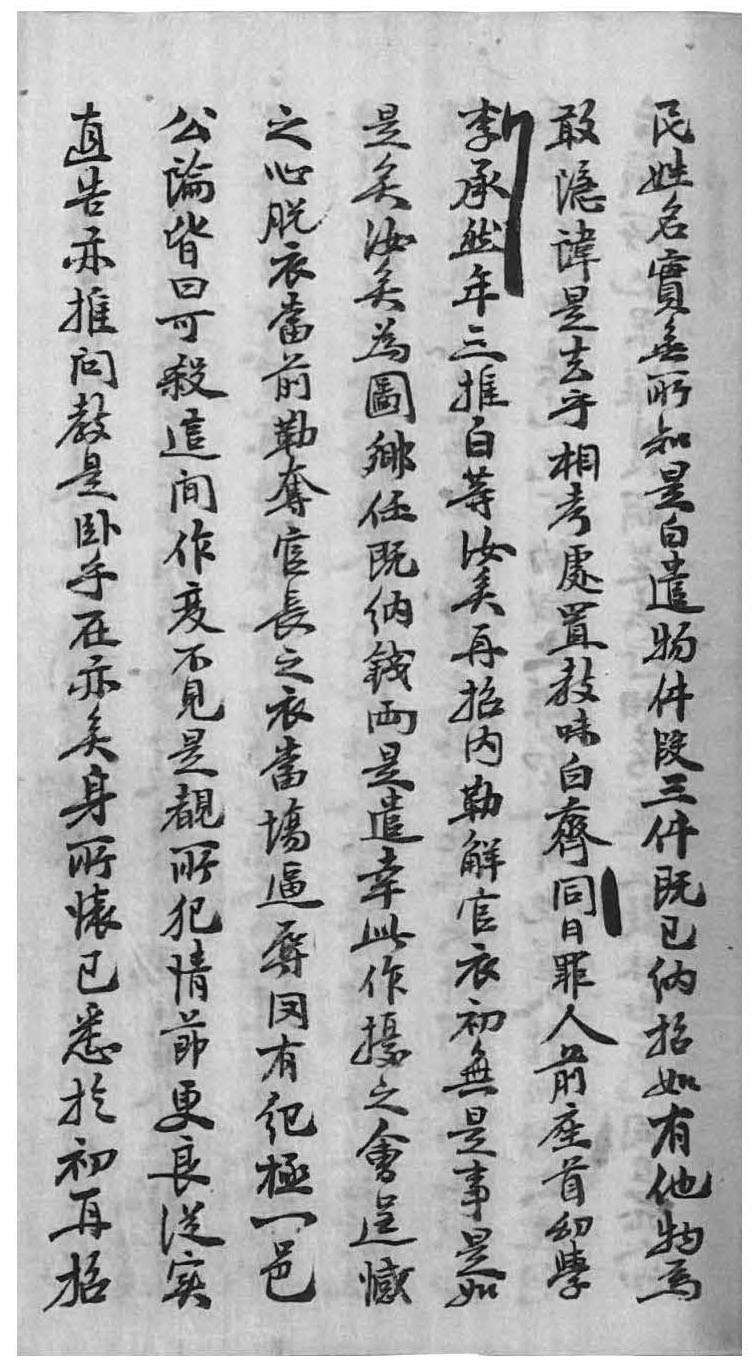 民姓名實無所知是白遣物件段三件既已納招如有他物焉
敢隱諱是去乎相考處置敎味白齊同日罪人前座首幼學
李承然年三推白等汝矣再招內勒解官衣初無是事是如
是矣汝矣爲圖鄕任旣納錢兩是遣幸此作擾之會逞憾
之心脫衣當前勒奪官長之衣當塲逼辱罔有紀極一邑
公論皆曰可殺這間作变不見是覩所犯情節更良從实
直告亦推问敎是臥乎在亦矣身所懷已悉於初再招